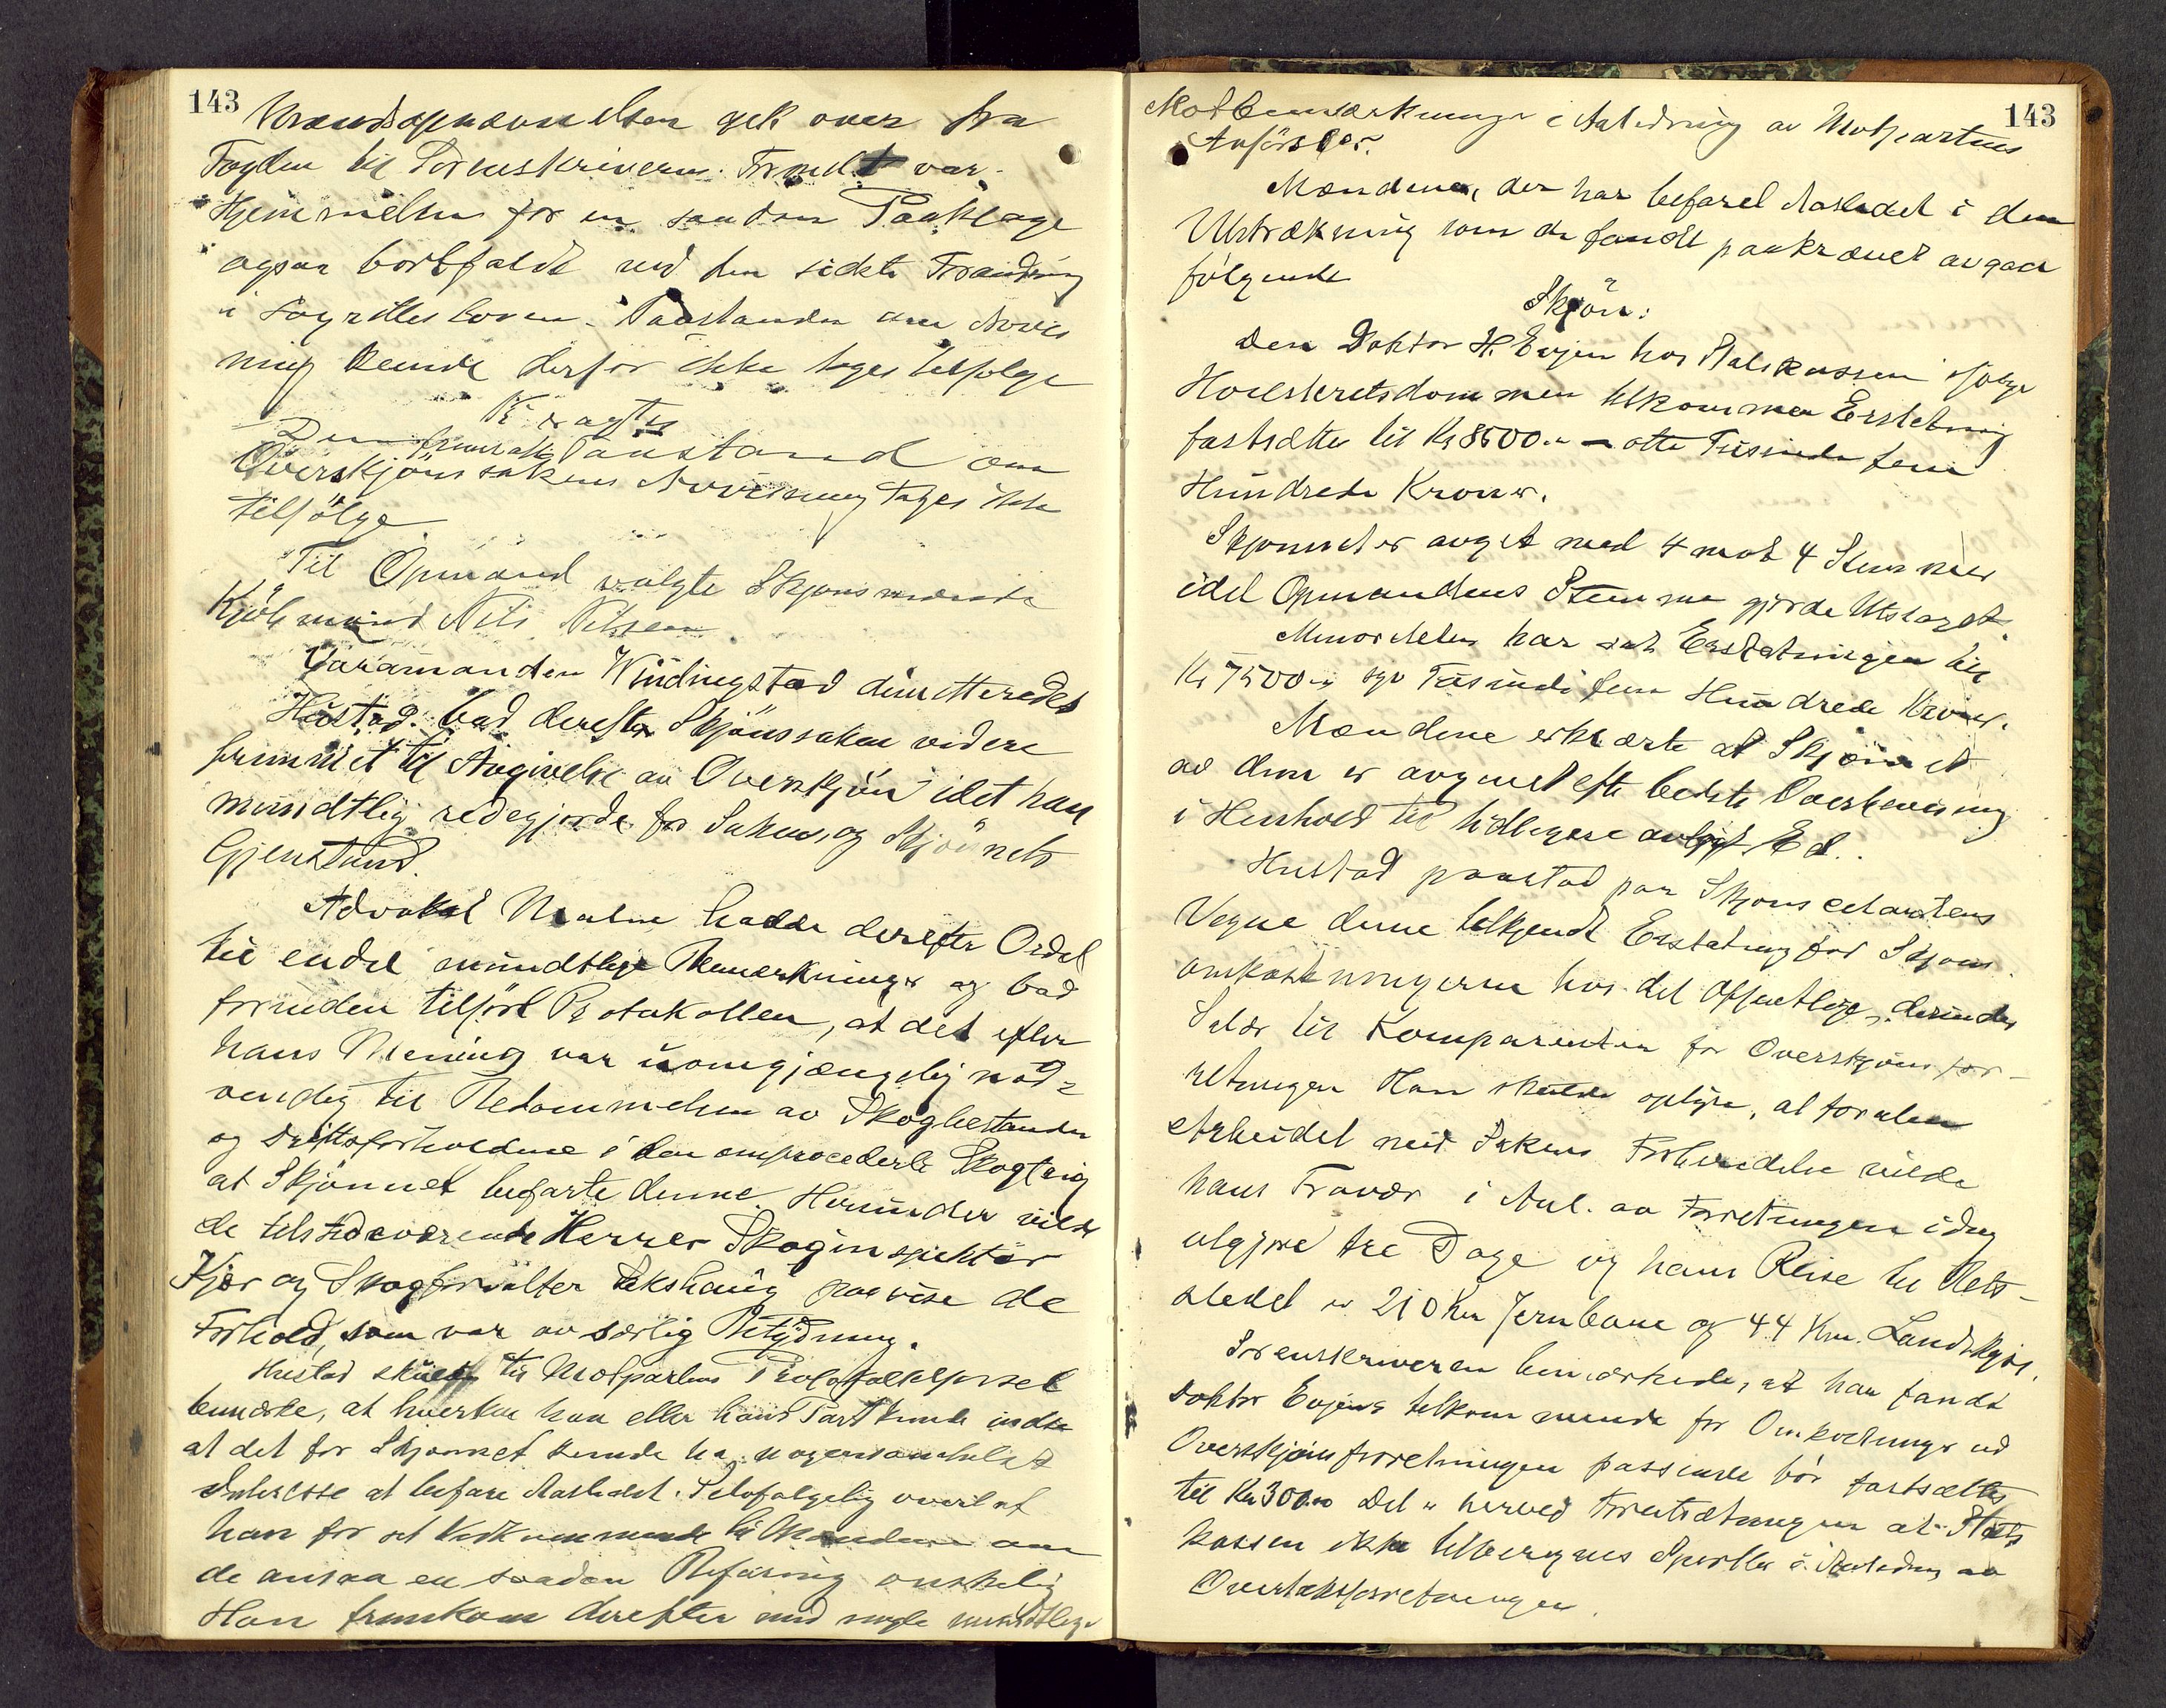 143
Mændsopnævnelsen gik over fra
Fogden til Sorenskriveren. Formelt var
Hjemmelen for en saadan Paaklage
ogsaa bortfaldt ved den sidste Forandring
i Sagrettesloven. Paastanden om Avvis
ning kunde derfor ikke tages tilfølge
Den fremsatte Paastand om
Overskjønssakens Avvisning tages ikke
tilfölge
Til Opmand valgte Skjønsmændene
Kjöbmand Nils Nilsen.
Varamanden Windingstad dimitteredes
Hustad bad derefter Skjönssaken videre
fremmet til Avgivelse av Overskjön idet han
mundtlig redegjorde for Sakens og Skjönnets
Gjenstand.
Advokat Malm hadde derefter Ordet
til endel mundtlige Bemerkninger og bad
forinden tilført Protokollen, at det efter
hans Mening var uomgjængelig nød-
vendig til Bedømmelsen av Skogbestanden
og Driftsforholdene i den omprocederte Skogteig
at Skjönnet befarte denne. Herunder vilde
de tilstedeværende Herrer Skoginspektør
Kjær og Skogforvalter paavise de
Forhold, som var av særlig Betydning.
Hustad skulde til Motpartens Protokoltilførsel
bemerke, at hverken han eller hans Part kunde indse
at det for Skjønnet kunde ha nogensomhelst
Interesse at befare Aastedet. Selvfølgelig overlot
han for sit Vedkommende til Mændene om
de ansaa en saadan Befaring ønskelig
Han fremkom derefter med nogle mundtlige
143
Motbemerkninger i Anledning av Motpartens
Anførsler.
Mændene, der har befaret Aastedet i den
Utstrækning som de fandt paakrævet avgav
følgende
Skjön:
Den Doktor H. Evjen hos Statskassen ifølge
Høiesteretsdommen tilkommen Erstatning
fastsættes til Kr 8500.- - otte Tusinde fem
Hundrede Kroner.
Skjønnet er avgit med 4 mot 4 Stemmer
idet Opmandens Stemme gjorde Utslaget.
Minoriteten har sat Erstatningen til
Kr 7500.- syv Tusinde fem Hundrede Kroner.
Mændene erklærte at Skjønnet
av dem er avgivet efter bedste Overbevisning
i Henhold til tidligere avlagt Ed.
Hustad paastod paa Skjøns
Vegne denne tilkjendt Erstatning for Skjøns
omkostningerne hos det Offentlige, derunder
Salær til Komparenten for Overskjønsfor-
retningen Han skulde oplyse, at foruten
Arbeidet med Sakens Forberedelse vilde
hans Fravær i Anl. av Forretningen idag
utgjøre tre Dage og hans Reise til Rets-
stedet er 210 km Jernbane og 44 Km. Landskyss.
Sorenskriveren bemærkede, at han fandt
Doktor Evjens tilkommende for Omkostninger ved
Overskjønsforretningen passende bør fastsættes
til Kr 300.00 Det er herved Forutsætningen at Stats
kassen ikke tilberegnes Sportler i Anledning av
Overtakstforretningen.